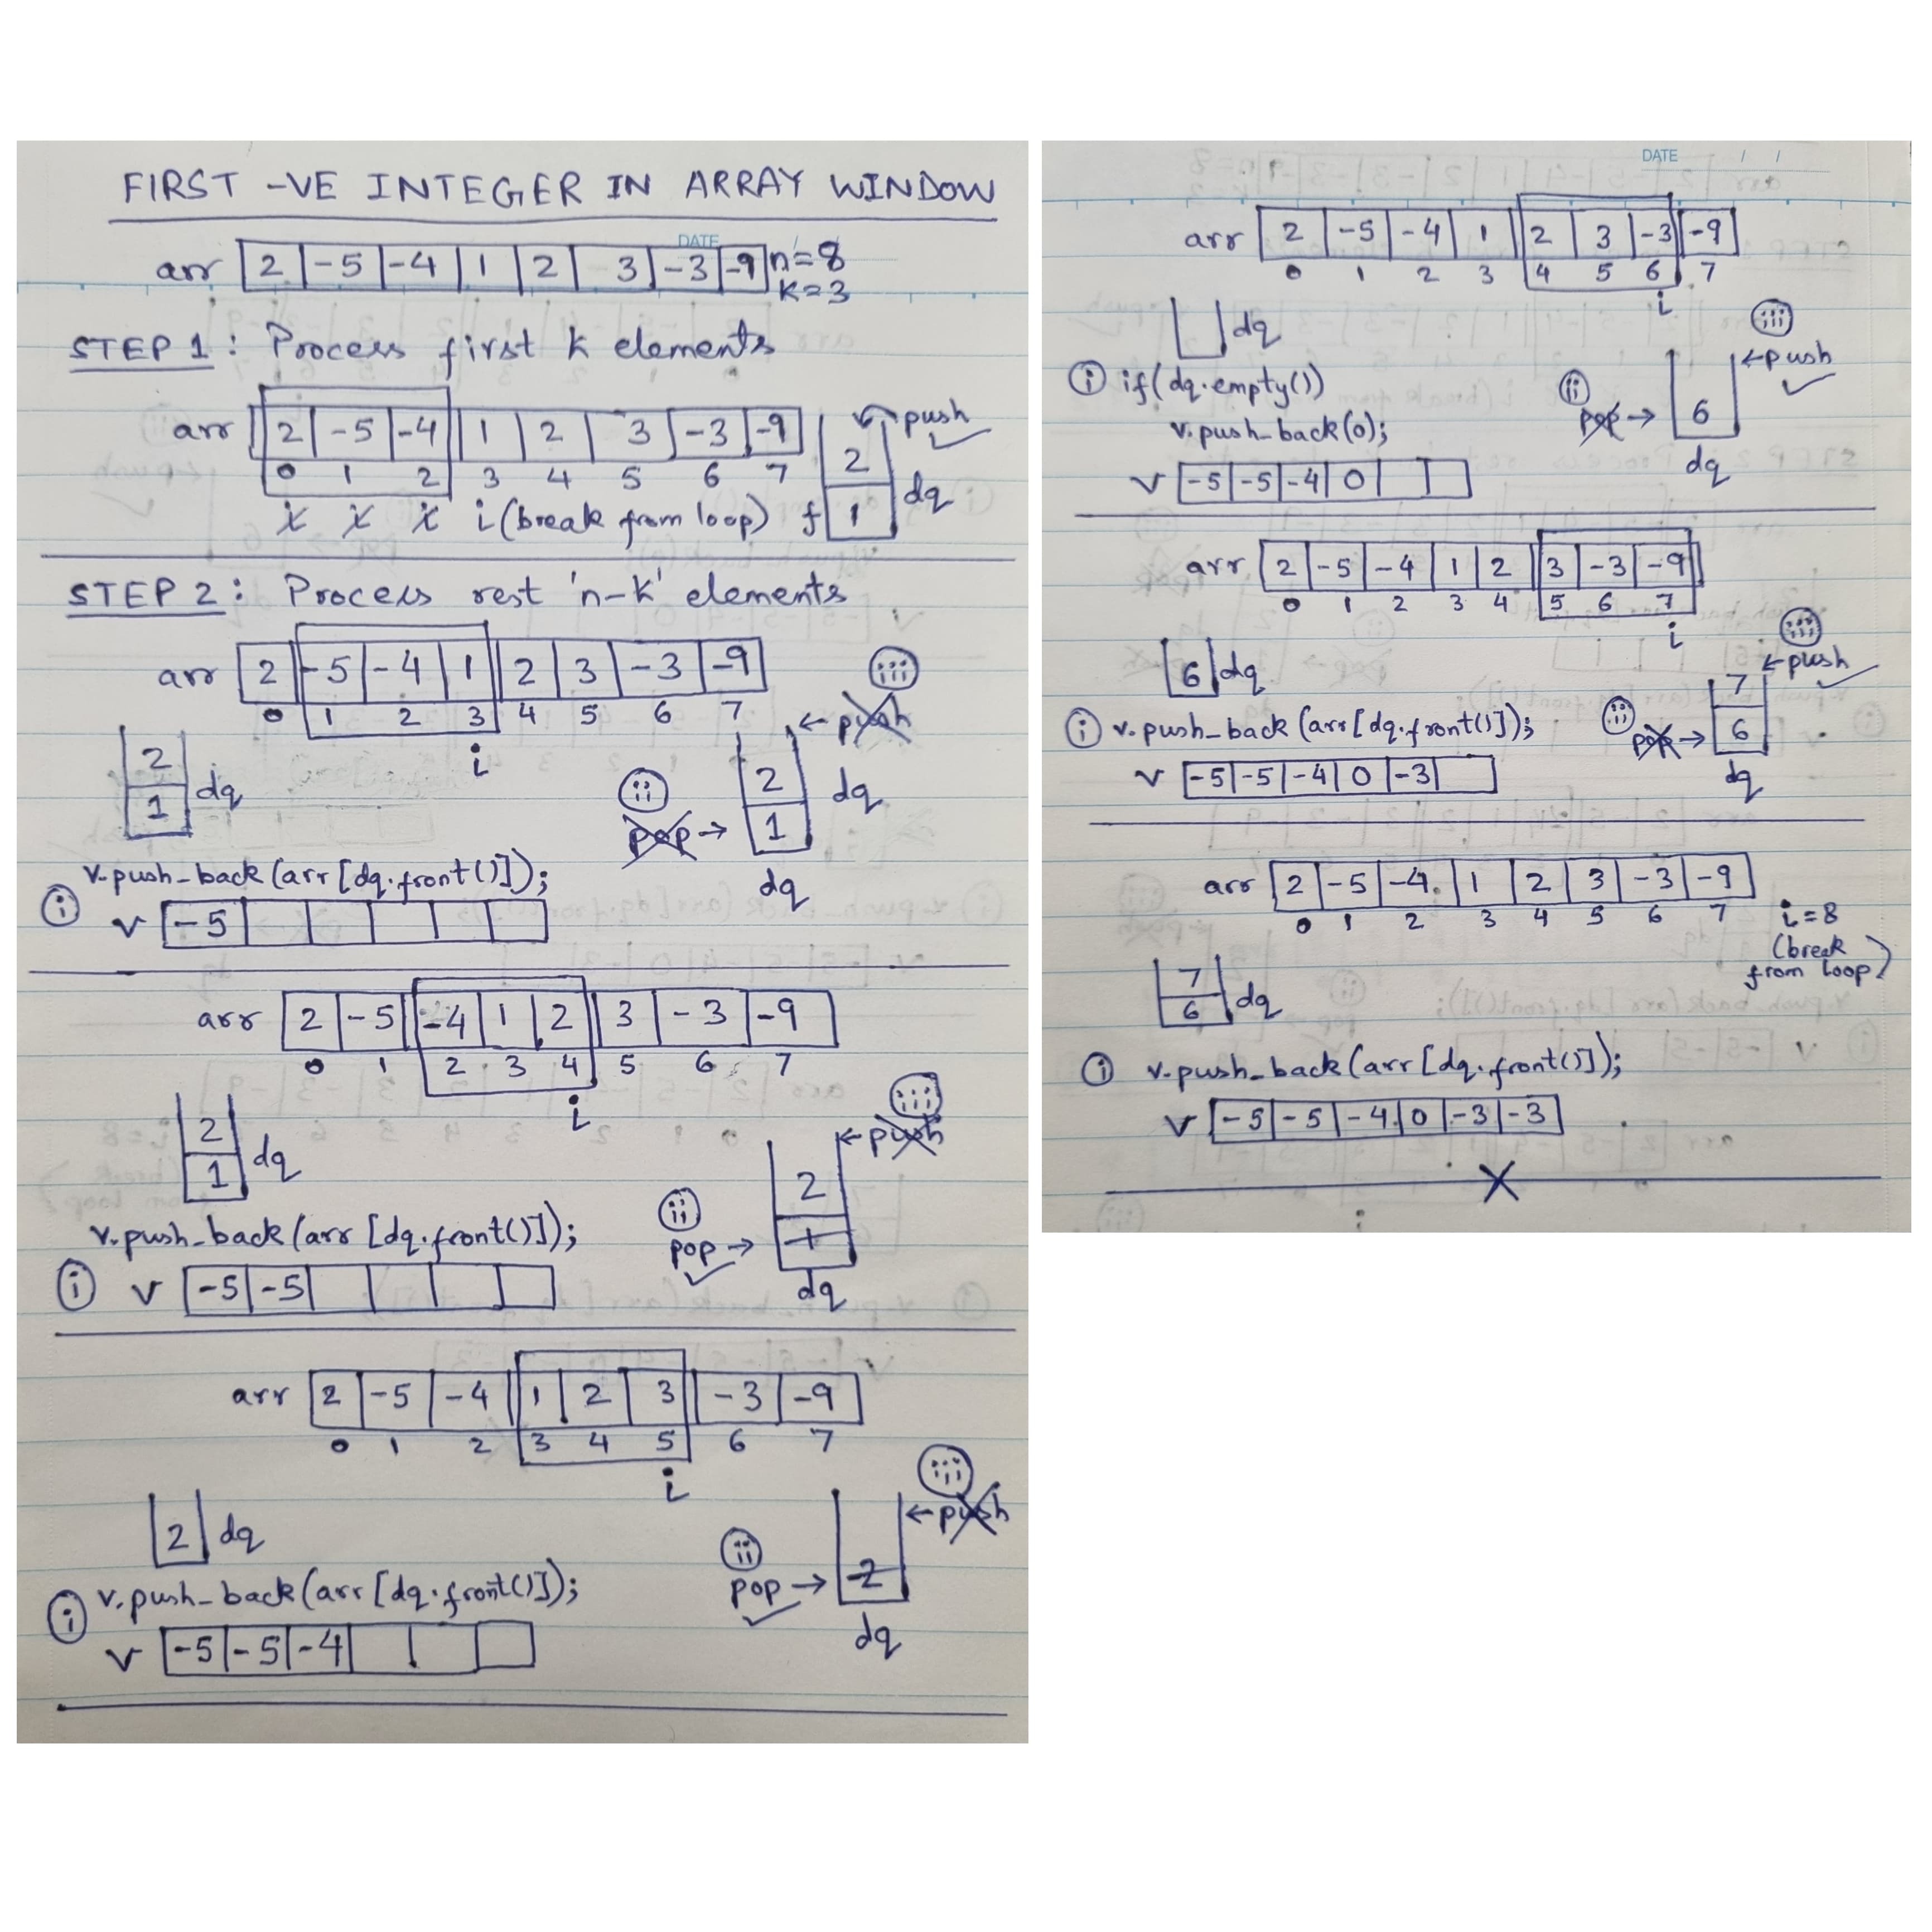 FIRST -VE INTEGER IN ARRAY WINDOW
DATE / /
arr 2 -5 -4 1 2 3 -3 -9 n=8
k=3
STEP 1: Process first k elements
arr 2 -5 -4 1 2 3 -3 -9
0 1 2 3 4 5 6 7
i i i i (break from loop)
push
2
f 1 dq
STEP 2: Process rest 'n-k' elements
arr 2 -5 -4 1 2 3 -3 -9
0 1 2 3 4 5 6 7
i
2
1 dq
iii
push
ii
pop → 2
1
dq
dq
v.push_back(arr[dq.front()]);
i v -5
arr 2 -5 -4 1 2 3 -3 -9
0 1 2 3 4 5 6 7
i
2
1 dq
iii
push
ii
pop → 2
1
dq
v.push_back(arr[dq.front()]);
i v -5 -5
arr 2 -5 -4 1 2 3 -3 -9
0 1 2 3 4 5 6 7
i
2 dq
iii
push
ii
pop → 2
dq
i v.push_back(arr[dq.front()]);
v -5 -5 -4
DATE / /
arr 2 -5 -4 1 2 3 -3 -9
0 1 2 3 4 5 6 7
i
dq
i if(dq.empty())
v.push_back(0);
iii
push
ii
pop → 6
dq
v -5 -5 -4 0
arr 2 -5 -4 1 2 3 -3 -9
0 1 2 3 4 5 6 7
i
6 dq
iii
push
i v.push_back(arr[dq.front()]);
ii
pop → 7
6
dq
v -5 -5 -4 0 -3
arr 2 -5 -4 1 2 3 -3 -9
0 1 2 3 4 5 6 7 i=8
(break
from loop)
7
6 dq
i v.push_back(arr[dq.front()]);
v -5 -5 -4 0 -3 -3
X